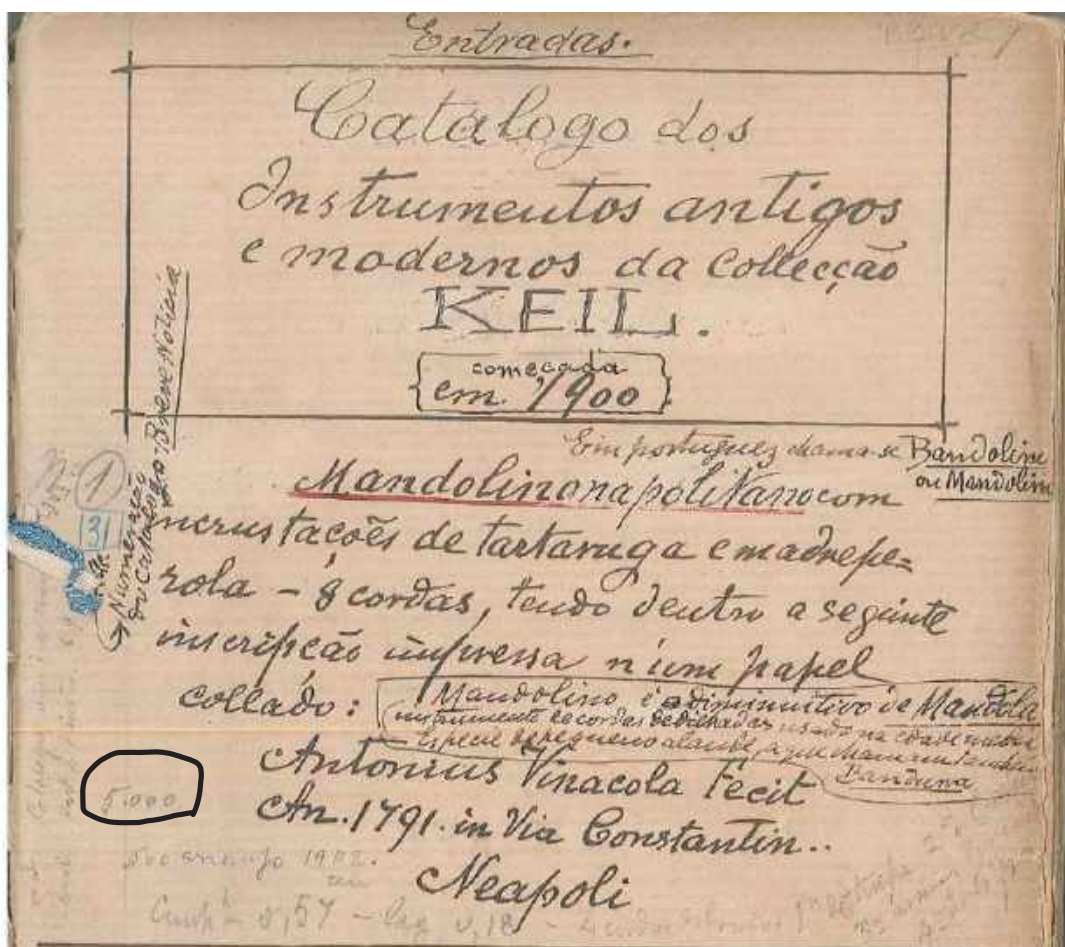 Entradas.
Catalogo dos
Instrumentos antigos
e modernos da Collecção
KEIL.
começada
em 1900
Em portuguez chama-se Bandolim
ou Mandolim
Mandolino napolitano com
incrustações de tartaruga e madrepe=
rola – 8 cordas, tendo dentro a seguinte
inscripção impressa n'um papel
collado:
Mandolino é o diminuitivo de Mandola
instrumento de cordas dedilhadas usado na edade media
Especie de pequeno alaude, a que chamam tambem
Bandurra
Antonius Vinacola Fecit
An. 1791. in Via Constantin..
Neapoli
1
31
Numeração
do Catalogo Breve Noticia
5.000
1902.